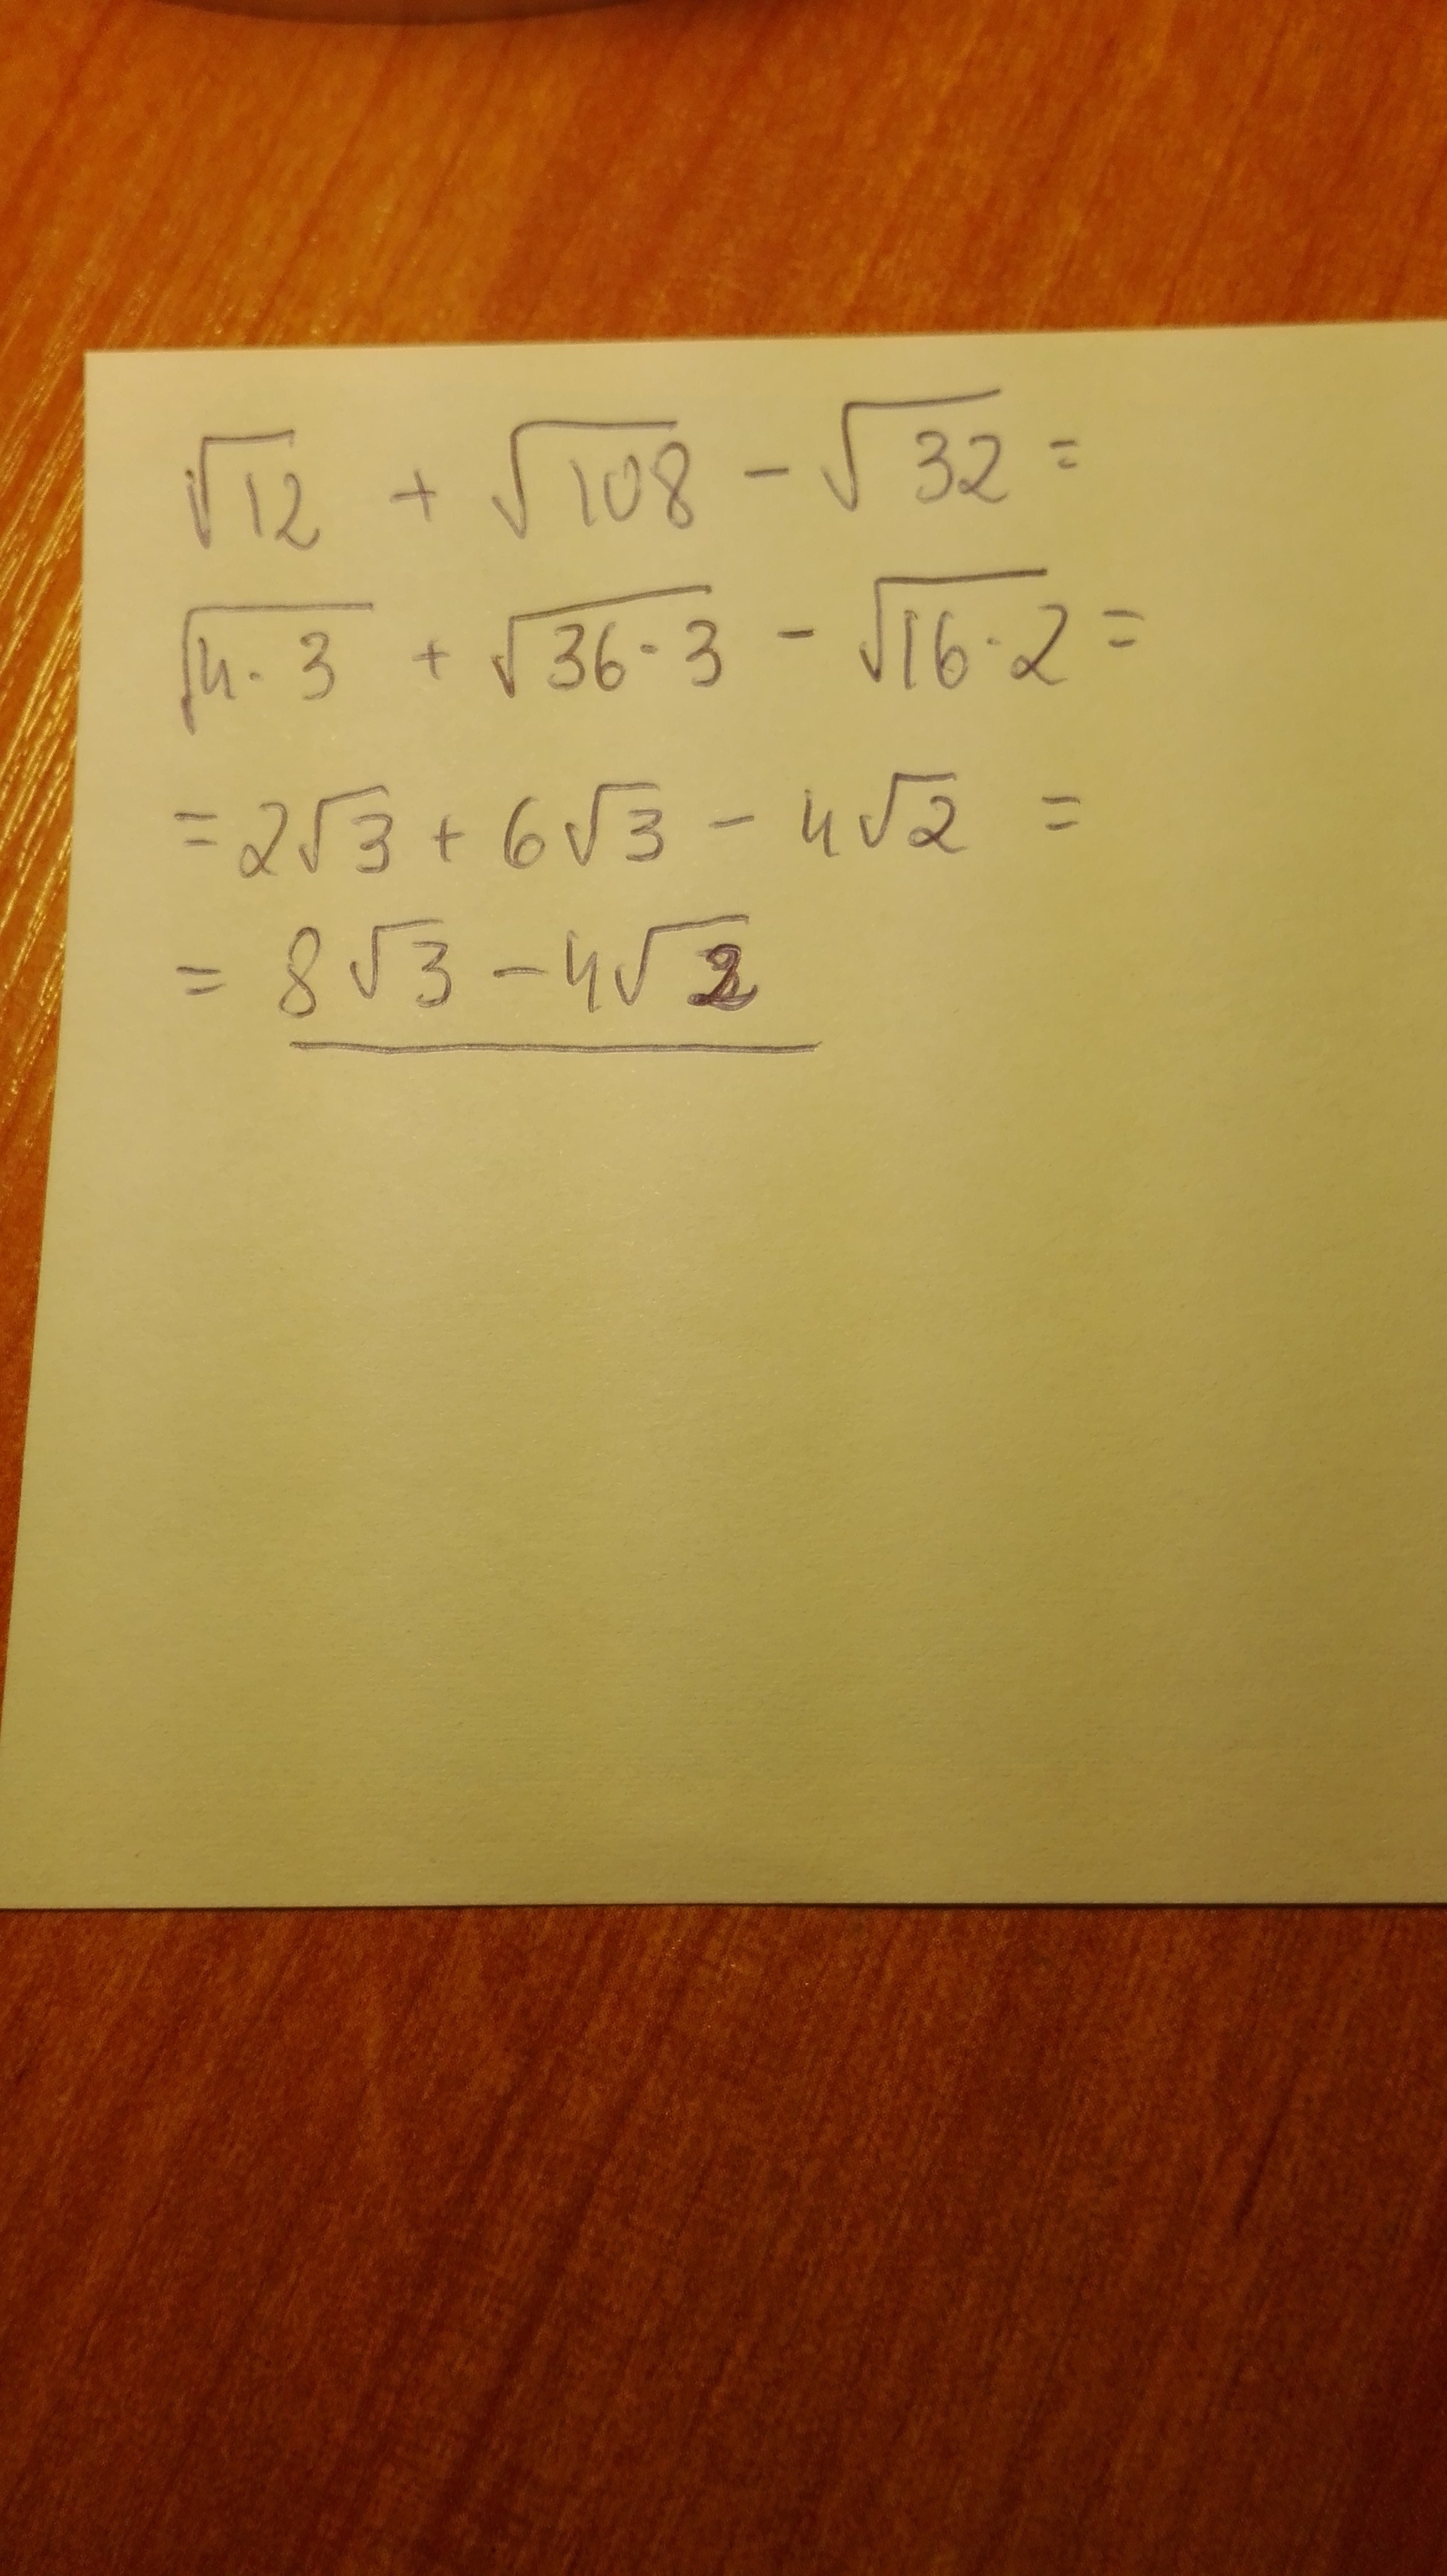 √12 + √108 - √32 =
√4·3 + √36·3 - √16·2 =
= 2√3 + 6√3 - 4√2 =
= 8√3 - 4√2